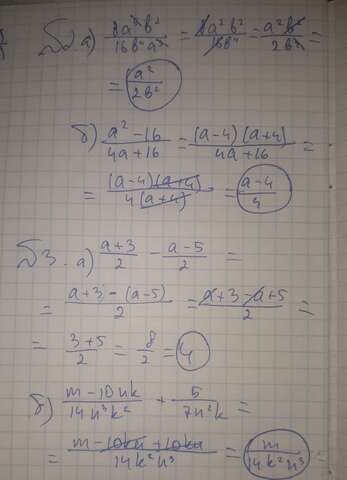 №2. а) 8a⁴b²/16b⁴a² = 8a²b²/16b⁴ = a²b²/2b⁴ =
= a²/2b²
б) (a² - 16)/(4a + 16) = (a-4)(a+4)/(4a + 16) =
= (a-4)(a+4)/4(a+4) = (a-4)/4
№3. а) (a+3)/2 - (a-5)/2 =
= (a+3 - (a-5))/2 = (a+3-a+5)/2 =
= (3+5)/2 = 8/2 = 4
б) (m - 10nk)/14n³k² + 5/7n²k =
= (m - 10kn + 10kn)/14k²n³ = m/14k²n³ =